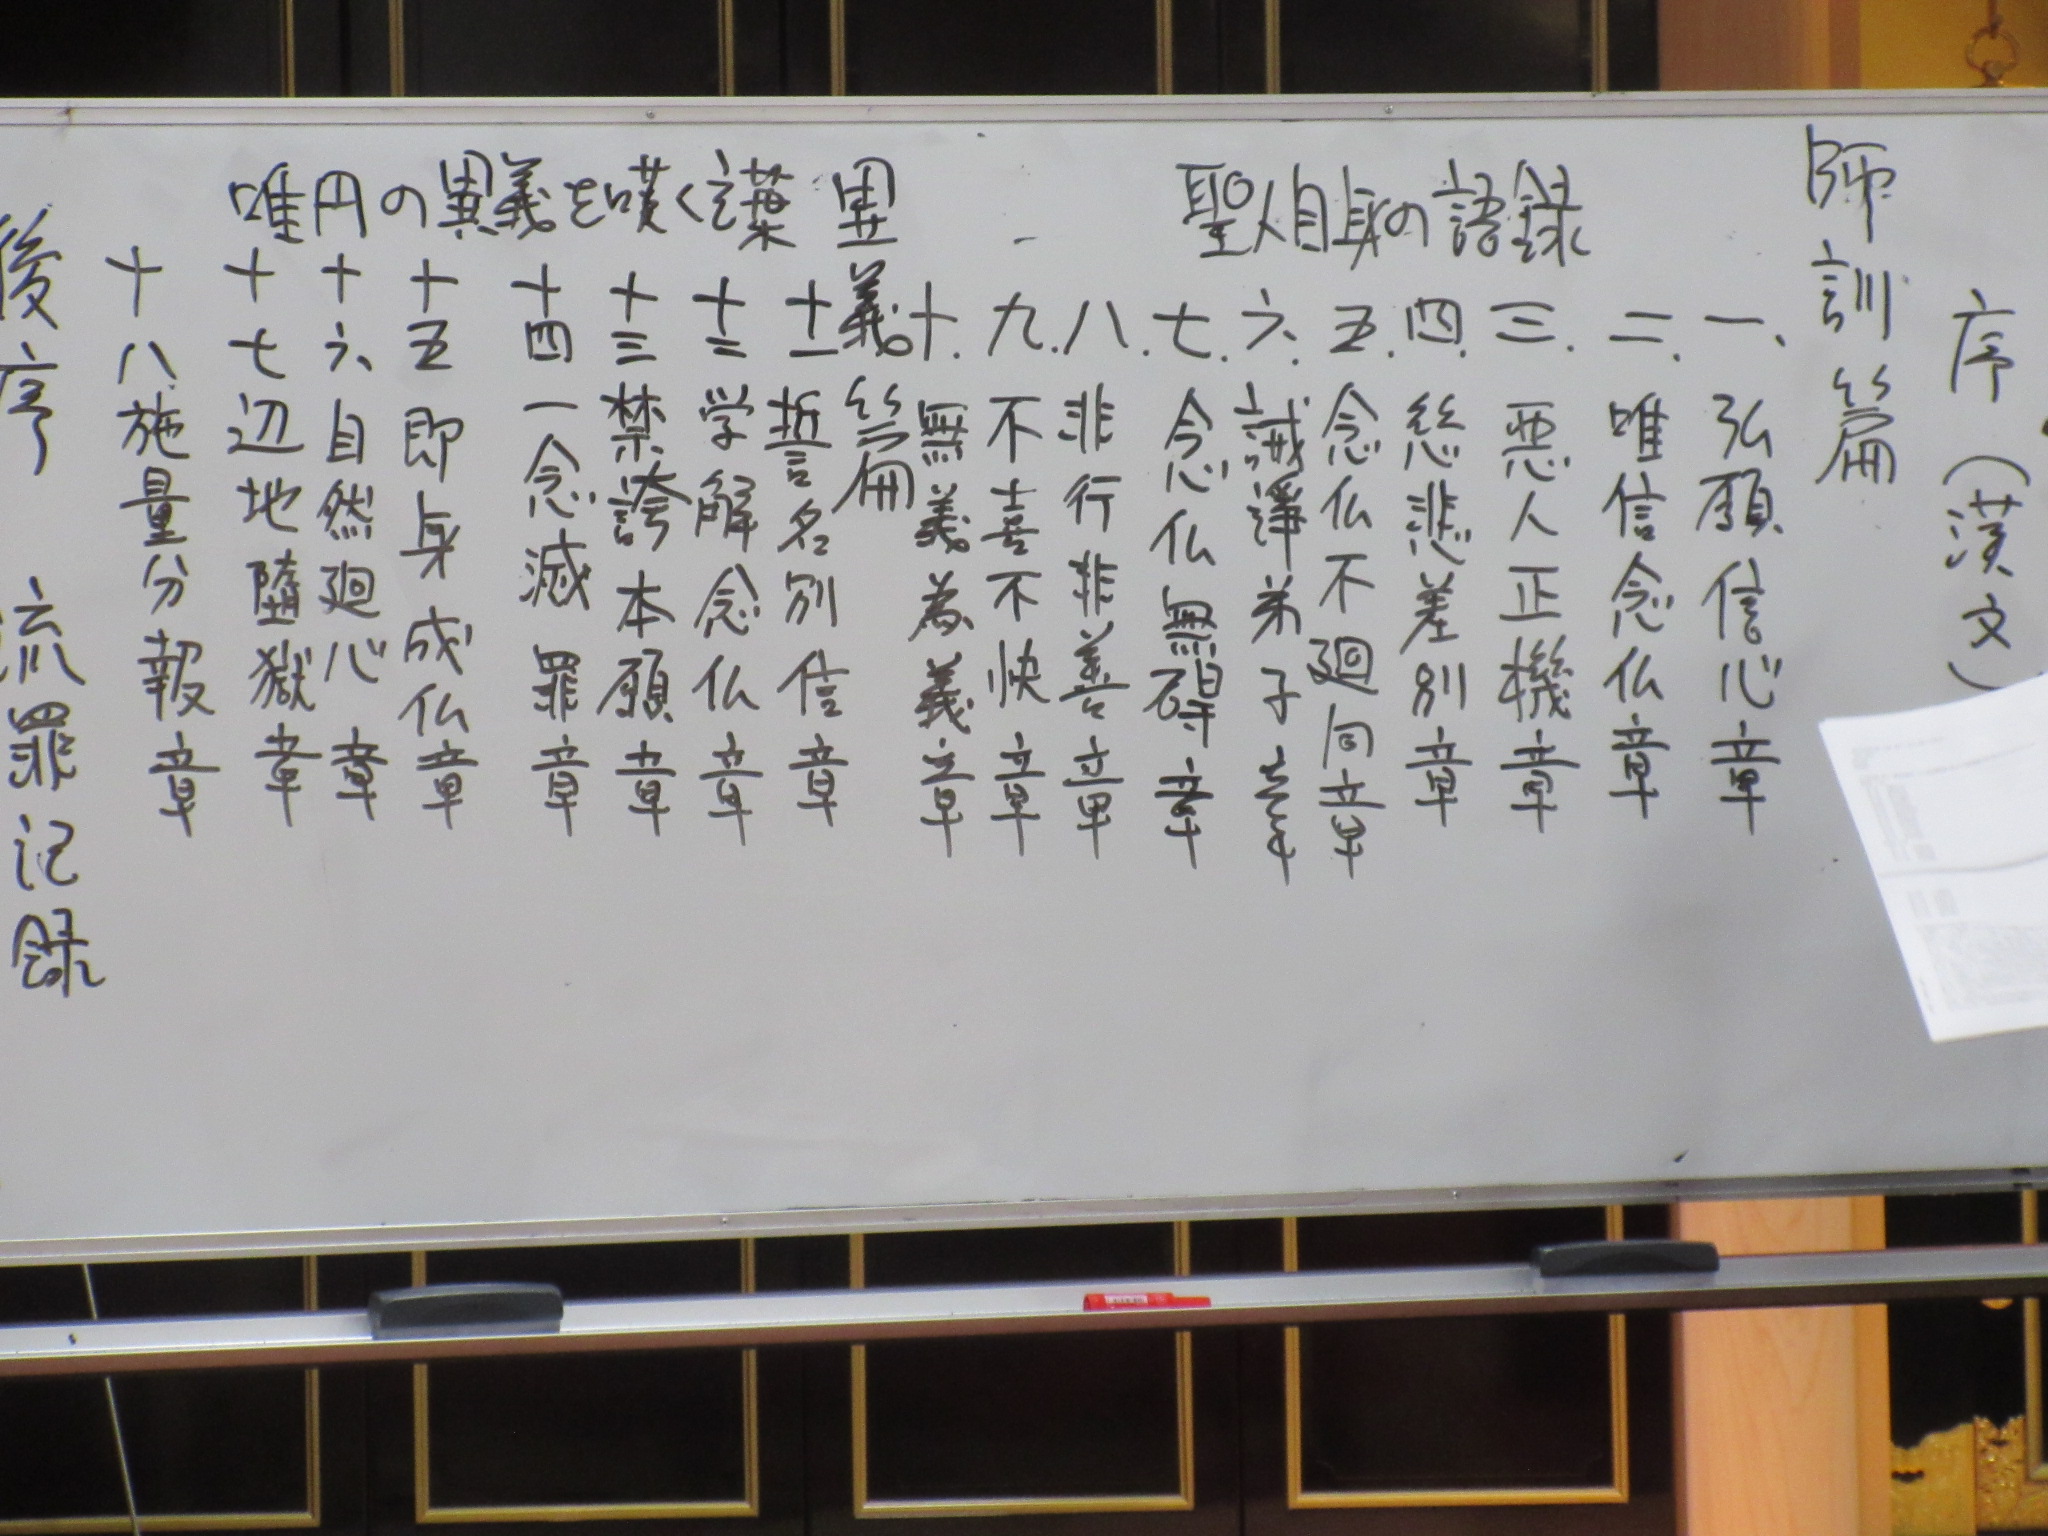 序（漢文）
師訓篇
聖人自身の語録
一、弘願信心章
二、唯信念仏章
三、悪人正機章
四、慈悲差別章
五、念仏不廻向章
六、誡諍弟子章
七、念仏無碍章
八、非行非善章
九、不喜不快章
十、無義為義章
異義篇
唯円の異義を嘆く言葉
十一誓名別信章
十二学解念仏章
十三禁誇本願章
十四一念滅罪章
十五即身成仏章
十六、自然廻心章
十七辺地堕獄章
十八施量分報章
後序 流罪記録